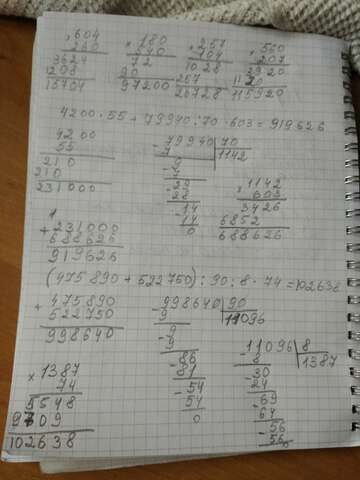 × 604 × 180 × 257 × 560
260 540 104 207
3624 72 1028 3920
1208 90 257 1120
15704 97200 26728 115920
4200 · 55 + 79940 : 70 · 603 = 919626
4200 - 79940 70
55 7 1142
210 - 9
210 7
231000 - 29
28 × 1142
- 14 603
14 3426
0 6852
688626
1
+ 231000
688626
919626
(475890 + 522750) : 90 : 8 · 74 = 102638
+ 475890 - 998640 90
522750 9 11096
998640 - 9
9
86 - 11096 8
- 81 8 1387
× 1387 - 54 - 30
74 54 24
5548 0 - 69
9709 64
102638 - 56
56